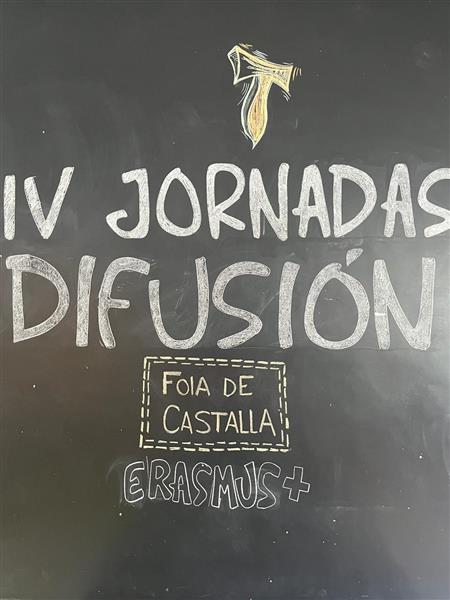 IV JORNADAS
DIFUSIÓN
FOIA DE
CASTALLA
ERASMUS+